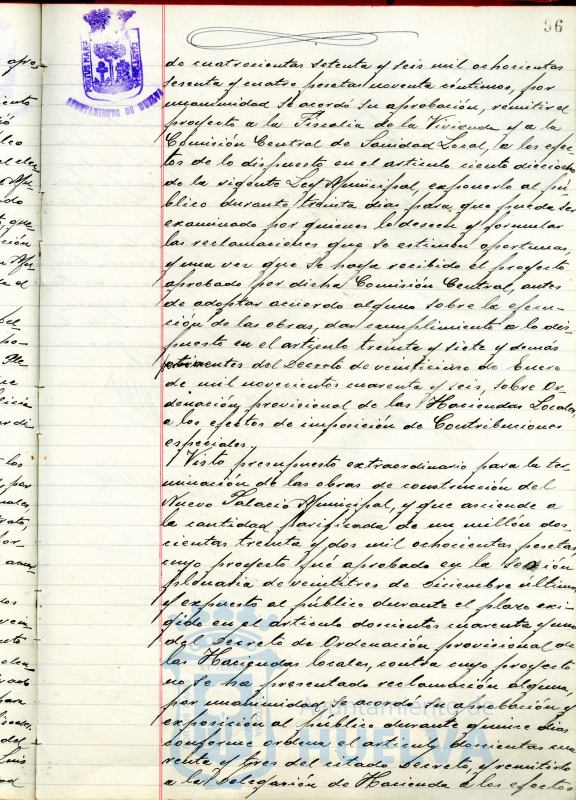 96
PORTUS MARIS
CUSTODIA
AYUNTAMIENTO DE HUELVA
de cuatrocientas setenta y seis mil ochocientas
sesenta y cuatro pesetas noventa céntimos, por
unanimidad se acordó su aprobación, remitir el
proyecto a la Fiscalía de la Vivienda y a la
Comisión Central de Sanidad Local, a los efec-
tos de lo dispuesto en el articulo ciento dieciocho
de la vigente Ley Municipal, exponerlo al pú-
blico durante treinta dias para que pueda ser
examinado por quienes lo deseen y formular
las reclamaciones que se estimen oportunas,
y una vez que se haya recibido el proyecto
aprobado por dicha Comisión Central, antes
de adoptar acuerdo alguno sobre la ejecu-
ción de las obras, dar cumplimiento a lo dis-
puesto en el articulo treinta y siete y demás
pertinentes del Decreto de veinticinco de Enero
de mil novecientos cuarenta y seis, sobre Or-
denación provisional de las Haciendas Locales,
a los efectos de imposición de Contribuciones
especiales.
Visto presupuesto extraordinario para la ter-
minación de las obras de construcción del
Nuevo Palacio Municipal, y que asciende a
la cantidad de un millón dos-
cientas treinta y dos mil ochocientas pesetas
cuyo proyecto fué aprobado en la sesión
plenaria de veintitres de Diciembre último
y expuesto al público durante el plazo exi-
gido en el articulo doscientos cuarenta y uno
del Decreto de Ordenación provisional de
las Haciendas locales, contra cuyo proyecto
no se ha presentado reclamación alguna,
por unanimidad se acordó su aprobación y
exposición al público durante quince dias
conforme ordena el articulo doscientos cua-
renta y tres del citado Decreto, y remitirlo
a la Delegación de Hacienda a los efectos
Ayuntamiento de
HUELVA